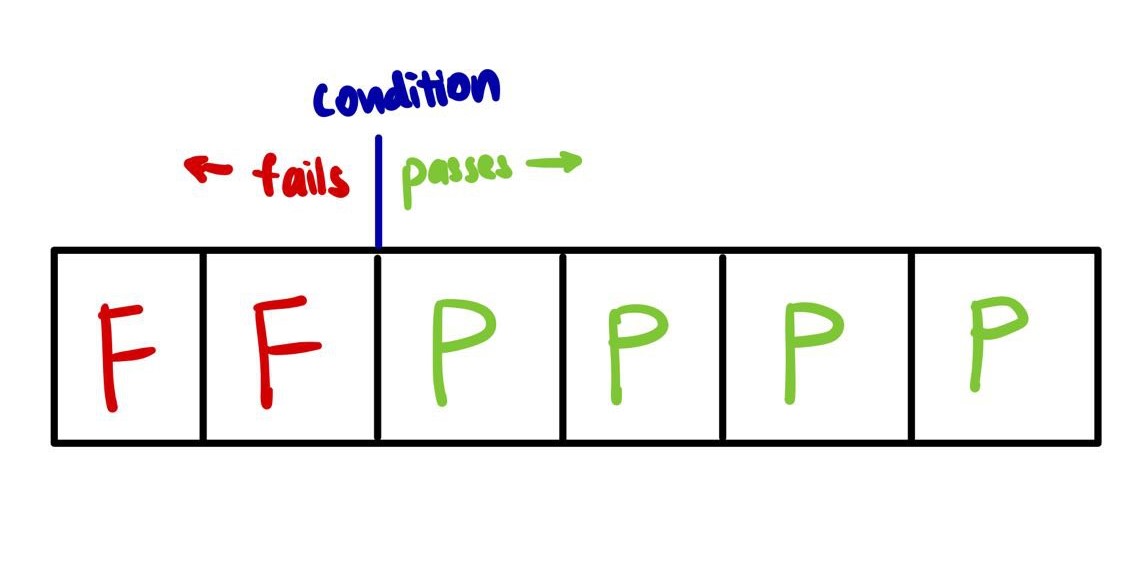 condition
← fails passes →
F F P P P P